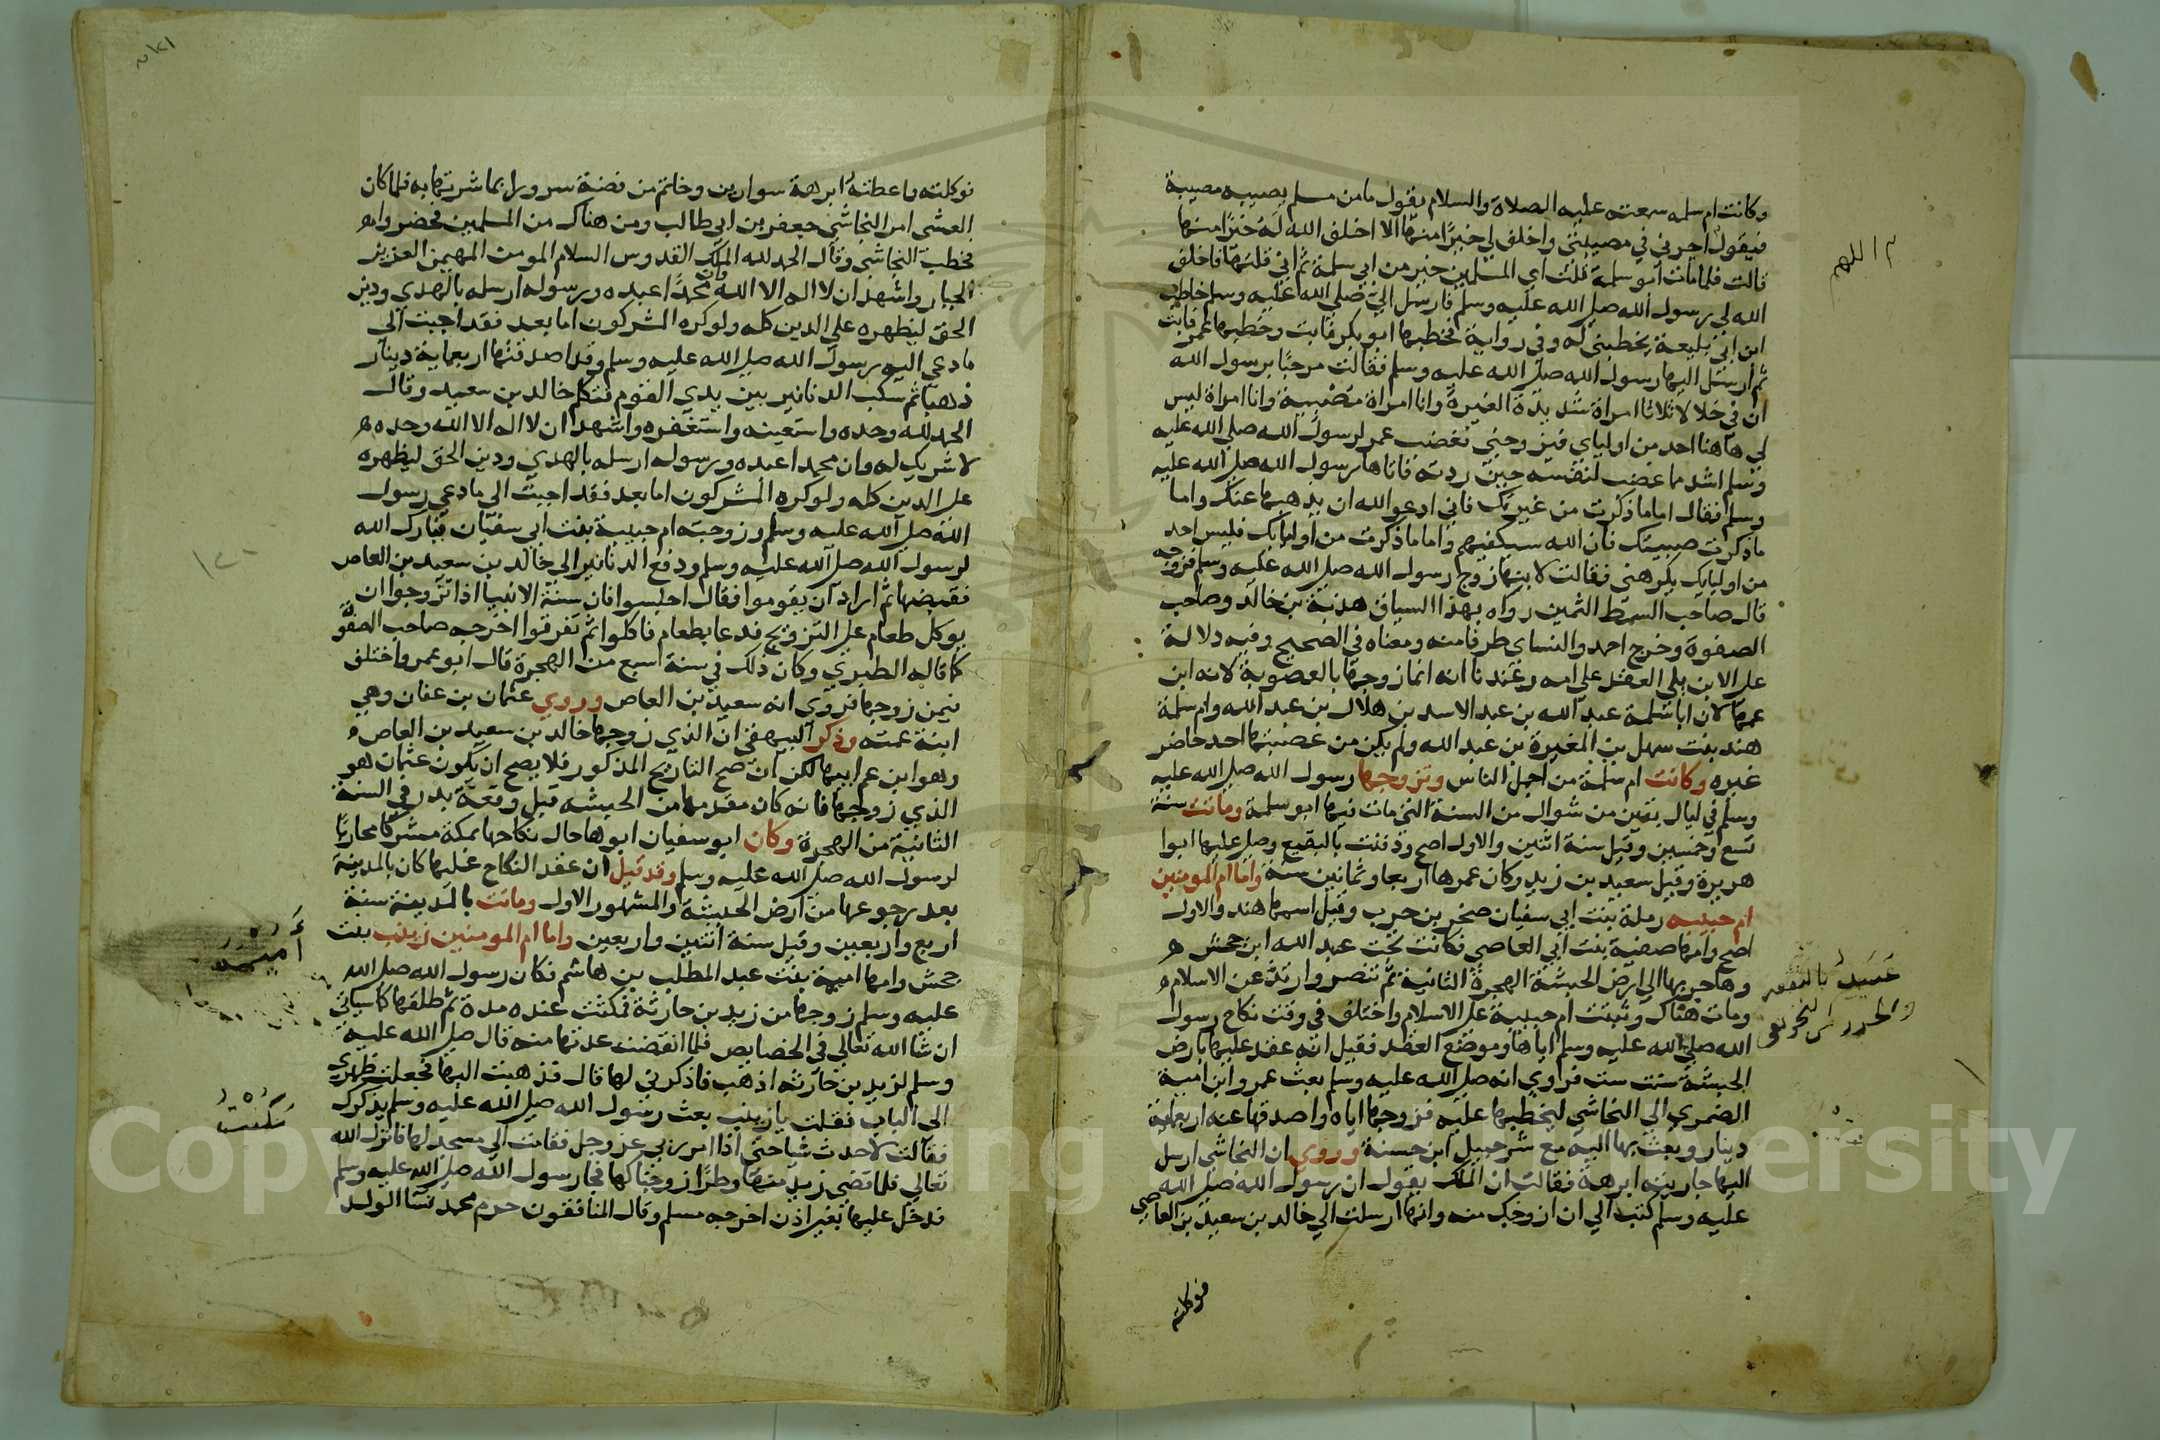 وكانت ام سلمه سمعته عليه الصلاة والسلام يقول ما من مسلم يصيبه مصيبة
فيقول اجرني في مصيبتي واخلف لي خيرا منها الا اخلف الله له خيرا منها
قالت فلما مات ابو سلمة قلت اي المسلمين خير من ابي سلمة ثم اني قلتها فاخلف
الله لي رسول الله صلى الله عليه وسلم فارسل الي صلى الله عليه وسلم حاطب
ابن ابي بلتعة يخطبني له وفي رواية فخطبها ابو بكر فابت وخطبها عمر فابت
ثم ارسل اليها رسول الله صلى الله عليه وسلم فقالت مرحبا برسول الله
ان في خلالا ثلاثا امراة شديدة الغيرة وانا امراة مصبية وانا امراة ليس
لي هاهنا احد من اولياي فيزوجني فغضب عمر لرسول الله صلى الله عليه
وسلم اشد مما غضب لنفسه حين ردته فاتاها رسول الله صلى الله عليه
وسلم فقال اما ما ذكرت من غيرتك فاني ادعو الله ان يذهبها عنك واما
ما ذكرت صبيتك فان الله سيكفيهم واما ما ذكرت من اوليايك فليس احد
من اوليايك يكرهني فقالت لابنها زوج رسول الله صلى الله عليه وسلم فزوجه
قال صاحب السمط الثمين رواه بهذا السياق هدبة بن خالد وصاحب
الصفوة وخرج احمد والنساي طرفا منه ومعناه في الصحيح وفيه دلالة
على الابن يلي العقد على امه وعندنا انه انما زوجها بالعصوبة لانه ابن
عمها لان ابا سلمة عبد الله بن عبد الاسد بن هلال بن عبد الله وام سلمة
هند بنت سهل بن المغيرة بن عبد الله ولم يكن من عصبتها احد حاضر
غيره وكانت ام سلمة من اجمل الناس وتزوجها رسول الله صلى الله عليه
وسلم في ليال بقين من شوال من السنة التي مات فيها ابو سلمة وماتت سنة
تسع وخمسين وقيل سنة اثنين والاول اصح ودفنت بالبقيع وصلى عليها ابوا
هريرة وقيل سعيد بن زيد وكان عمرها اربعا وثمانين سنة واما ام المومنين
ام حبيبه رملة بنت ابي سفيان صخر بن حرب وقيل اسمها هند والاول
اصح وامها صفية بنت ابي العاصي فكانت تحت عبد الله ابن جحش
وهاجر بها الى ارض الحبشة الهجرة الثانية ثم تنصر وارتد عن الاسلام
ومات هناك وثبتت ام حبيبة على الاسلام واختلف في وقت نكاح رسول
الله صلى الله عليه وسلم اياها وموضع العقد فقيل انه عقد عليها بارض
الحبشة سنت ست فروي انه صلى الله عليه وسلم بعث عمرو ابن امية
الضمري الي النجاشي ليخطبها عليه فزوجها اياه واصدقها عنه اربعماية
دينار وبعث بها اليه مع شرحبيل ابن حسنة وروي ان النجاشي ارسل
اليها جاريته ابرهة فقالت ان الملك يقول ان رسول الله صلى الله
عليه وسلم كتب الي ان ازوجك منه وانها ارسلت الي خالد بن سعيد بن العاصي
فوكلته
اللهم
عبيد بالتصغير
فوكلته واعطته ابرهة سوارين وخاتم من فضة سرورا بما بشرتها به فلما كان
العشى امر النجاشي جعفر بن ابي طالب ومن هناك من المسلمين فحضروا
فخطب النجاشي وقال الحمد لله الملك القدوس السلام المومن المهيمن العزيز
الجبار واشهد ان لا اله الا الله وان محمدا عبده ورسوله ارسله بالهدي ودين
الحق ليظهره على الدين كله ولو كره المشركون اما بعد فقد اجبت الى
ما دعي اليه رسول الله صلى الله عليه وسلم وقد اصدقتها اربعماية دينار
ذهبا ثم سكب الدنانير بين يدي القوم فتكلم خالد بن سعيد وقال
الحمد لله وحده واستعينه واستغفره واشهد ان لا اله الا الله وحده
لا شريك له وان محمدا عبده ورسوله ارسله بالهدي ودين الحق ليظهره
على الدين كله ولو كره المشركون اما بعد فقد اجبت الى ما دعى رسول
الله صلى الله عليه وسلم وزوجته ام حبيبة بنت ابي سفيان فبارك الله
لرسول الله صلى الله عليه وسلم ودفع الدنانير الى خالد بن سعيد بن العاص
فقبضها ثم ارادان يقوموا فقال اجلسوا فان سنة الانبيا اذا تزوجوا ان
يوكل طعام على التزويج فدعا بطعام فاكلوا ثم تفرقوا اخرجه صاحب الصفوة
كما قاله الطبري وكان ذلك في سنة سبع من الهجرة قال ابو عمر واختلف
فيمن زوجها فروي انه سعيد بن العاص وروي عثمان بن عفان وهي
ابنة عمته وذكر البيهقي ان الذي زوجها خالد بن سعيد بن العاص
وهو ابن عم ابيها لكن ان صح التاريخ المذكور فلا يصح ان يكون عثمان هو
الذي زوجها فانه كان مقدمها من الحبشه قبل وقعة بدر في السنة
الثانية من الهجرة وكان ابو سفيان ابوها حال نكاحها بمكة مشركا محاربا
لرسول الله صلى الله عليه وسلم وقد قيل ان عقد النكاح عليها كان بالمدينة
بعد رجوعها من ارض الحبشة والمشهور الاول وماتت بالمدينة سنة
اربع واربعين وقيل سنة اثنين واربعين واما ام المومنين زينب بنت
جحش وامها اميمة بنت عبد المطلب بن هاشم فكان رسول الله صلى الله
عليه وسلم زوجها من زيد بن حارثة فمكثت عنده مدة ثم طلقها كما سياتي
ان شا الله تعالي في الخصايص فلما انقضت عدتها منه قال صلى الله عليه
وسلم لزيد بن حارثه اذهب فاذكرني لها قال فذهبت اليها فجعلت ظهري
الى الباب فقلت يا زينب بعث رسول الله صلى الله عليه وسلم يذكرك
فقالت لاحدث شيا حتى اوامر ربي عز وجل فقامت الى مسجد لها فانزل الله
تعالي فلما قضي زيد منها وطرا زوجناكها فجا رسول الله صلى الله عليه وسلم
فدخل عليها بغير اذن اخرجه مسلم وقال المنافقون حرم محمد نسا الولد
أميمة